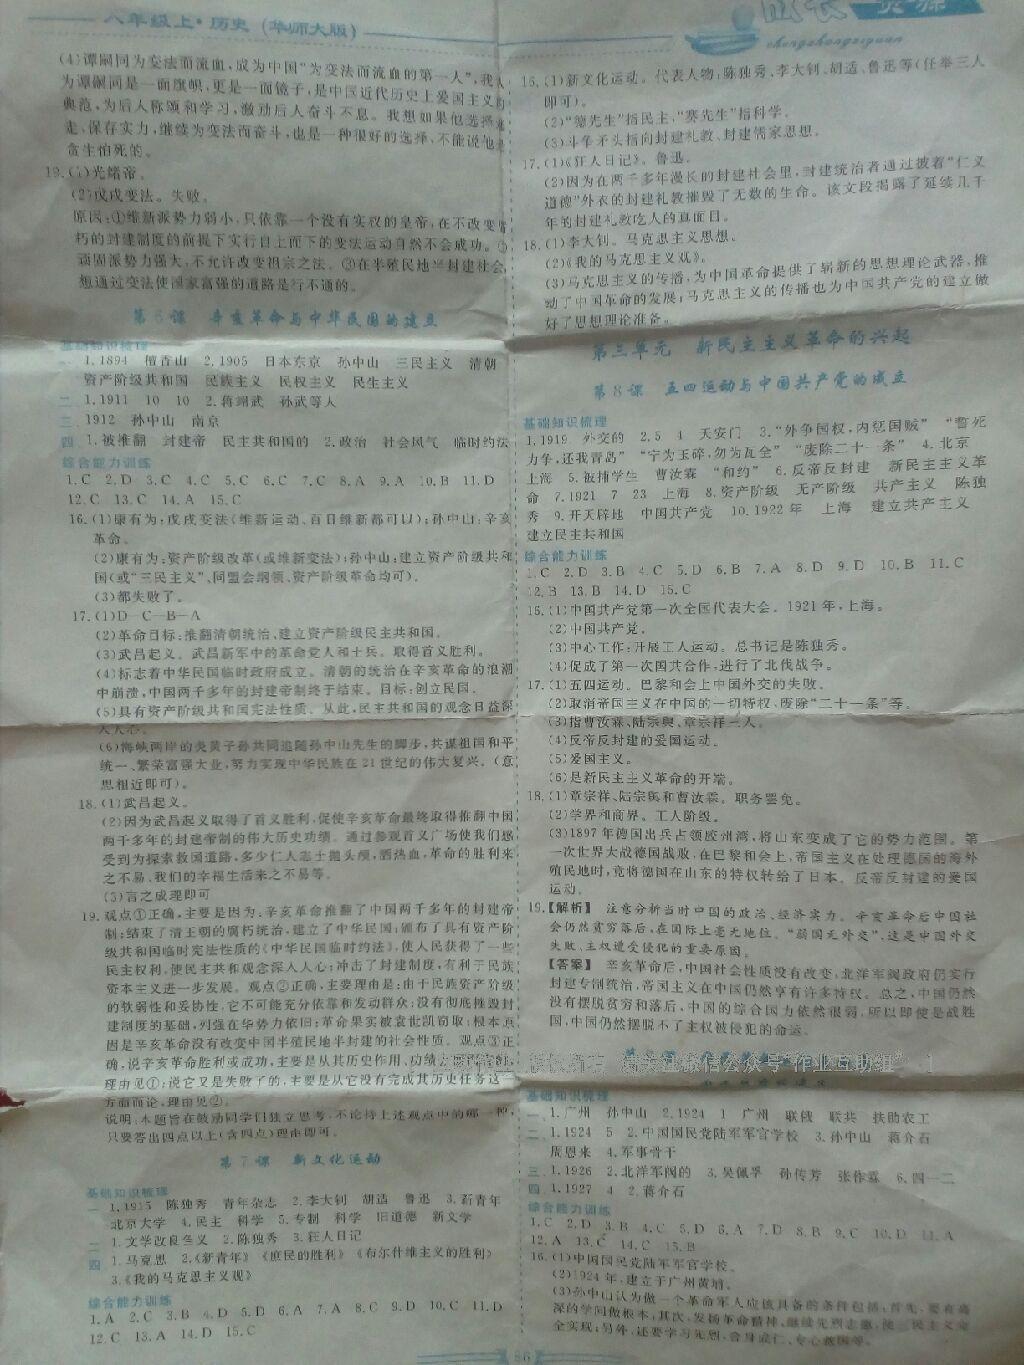 八年级上·历史(华师大版)
(4)谭嗣同为变法而流血,成为中国“为变法而流血的第一人”,我认
为谭嗣同是一面旗帜,更是一面镜子,是中国近代历史上爱国主义的
典范,为后人称颂和学习,激励后人奋斗不息。我想如果他选择逃
走,保存实力,继续为变法而奋斗,也是一种很好的选择,不能说他是
贪生怕死的。
19.(1)光绪帝。
(2)戊戌变法。失败。
原因:①维新派势力弱小,只依靠一个没有实权的皇帝,在不改变腐
朽的封建制度的前提下实行自上而下的变法运动自然不会成功。②
顽固派势力强大,不允许改变祖宗之法。③在半殖民地半封建社会,
想通过变法使国家富强的道路是行不通的。
第6课 辛亥革命与中华民国的建立
基础知识梳理
一、1.1894 檀香山 2.1905 日本东京 孙中山 三民主义 清朝
资产阶级共和国 民族主义 民权主义 民生主义
二、1.1911 10 10 2.蒋翊武 孙武等人
三、1912 孙中山 南京
四、1.被推翻 封建帝 民主共和国的 2.政治 社会风气 临时约法
综合能力训练
1.C 2.D 3.C 4.C 5.C 6.C 7.C 8.A 9.A 10.B 11.D
12.C 13.C 14.A 15.C
16.(1)康有为:戊戌变法(维新运动、百日维新都可以);孙中山:辛亥
革命。
(2)康有为:资产阶级改革(或维新变法);孙中山:建立资产阶级共和
国(或“三民主义”、同盟会纲领、资产阶级革命均可)。
(3)都失败了。
17.(1)D—C—B—A
(2)革命目标:推翻清朝统治、建立资产阶级民主共和国。
(3)武昌起义。武昌新军中的革命党人和士兵。取得首义胜利。
(4)标志着中华民国临时政府成立。清朝的统治在辛亥革命的浪潮
中崩溃,中国两千多年的封建帝制终于结束。目标:创立民国。
(5)具有资产阶级共和国宪法性质。从此,民主共和国的观念日益深
入人心。
(6)海峡两岸的炎黄子孙共同追随孙中山先生的脚步,共谋祖国和平
统一、繁荣富强大业,努力实现中华民族在21世纪的伟大复兴。(意
思相近即可)。
18.(1)武昌起义。
(2)因为武昌起义取得了首义胜利,促使辛亥革命最终取得推翻中国
两千多年的封建帝制的伟大历史功绩。通过参观首义广场使我们感
受到为探索救国道路,多少仁人志士抛头颅,洒热血,革命的胜利来
之不易,我们的幸福生活来之不易等。
(3)言之成理即可
19.观点①正确,主要是因为:辛亥革命推翻了中国两千多年的封建帝
制;结束了清王朝的腐朽统治,建立了中华民国;颁布了具有资产阶
级共和国临时宪法性质的《中华民国临时约法》,使人民获得了一些
民主权利,使民主共和观念深入人心;冲击了封建制度,有利于民族
资本主义进一步发展。观点②正确,主要理由是:由于民族资产阶级
的软弱性和妥协性,它不可能充分依靠和发动群众;没有彻底摧毁封
建制度的基础,列强在华势力依旧;革命果实被袁世凯窃取;根本原
因是辛亥革命没有改变中国半殖民地半封建的社会性质。观点③正
确,说辛亥革命胜利或成功,主要是从其历史作用、功绩方面
理由见①;说它又是失败了的,主要是从它没有完成其历史任务这一
方面而论,理由见②。
说明:本题旨在鼓励同学们独立思考,不论持上述观点中的哪一种,
只要答出四点以上(含四点)理由即可。
第7课 新文化运动
基础知识梳理
一、1.1915 陈独秀 青年杂志 2.李大钊 胡适 鲁迅 3.新青年
北京大学 4.民主 科学 5.专制 科学 旧道德 新文学
二、1.文学改良刍议 2.陈独秀 3.狂人日记
四、1.马克思 2.《新青年》《庶民的胜利》《布尔什维主义的胜利》
3.《我的马克思主义观》
综合能力训练
1.A 2.C 3.B 4.D 5.D 6.D 7.D 8.D 9.D 10.C 11.D
12.C 13.A 14.D 15.C
成长资源
chengzhangziyuan
16.(1)新文化运动。代表人物:陈独秀、李大钊、胡适、鲁迅等(任举三人
即可)。
(2)“德先生”指民主,“赛先生”指科学。
(3)斗争矛头指向封建礼教、封建儒家思想。
17.(1)《狂人日记》。鲁迅。
(2)因为在两千多年漫长的封建社会里,封建统治者通过披着“仁义
道德”外衣的封建礼教摧毁了无数的生命。该文段揭露了延续几千
年的封建礼教吃人的真面目。
18.(1)李大钊。马克思主义思想。
(2)《我的马克思主义观》。
(3)马克思主义的传播,为中国革命提供了崭新的思想理论武器,推
动了中国革命的发展;马克思主义的传播也为中国共产党的建立做
好了思想理论准备。
第三单元 新民主主义革命的兴起
第8课 五四运动与中国共产党的成立
基础知识梳理
1.1919 外交的 2.5 4 天安门 3.“外争国权,内惩国贼” “誓死
力争,还我青岛” “宁为玉碎,勿为瓦全” “废除二十一条” 4.北京
上海 5.被捕学生 曹汝霖 “和约” 6.反帝反封建 新民主主义革
命 7.1921 7 23 上海 8.资产阶级 无产阶级 共产主义 陈独
秀 9.开天辟地 中国共产党 10.1922年 上海 建立共产主义
建立民主共和国
综合能力训练
1.C 2.D 3.B 4.C 5.D 6.B 7.A 8.D 9.D 10.B 11.C
12.B 13.B 14.D 15.C
15.(1)中国共产党第一次全国代表大会。1921年,上海。
(2)中国共产党。
(3)中心工作:开展工人运动。总书记是陈独秀。
(4)促成了第一次国共合作,进行了北伐战争。
17.(1)五四运动。巴黎和会上中国外交的失败。
(2)取消帝国主义在中国的一切特权、废除“二十一条”等。
(3)指曹汝霖、陆宗舆、章宗祥三人。
(4)反帝反封建的爱国运动。
(5)爱国主义。
(6)是新民主主义革命的开端。
18.(1)章宗祥、陆宗舆和曹汝霖。职务罢免。
(2)学界和商界。工人阶级。
(3)1897年德国出兵占领胶州湾,将山东变成了它的势力范围。第
一次世界大战德国战败,在巴黎和会上,帝国主义在处理德国的海外
殖民地时,竟将德国在山东的特权转给了日本。反帝反封建的爱国
运动。
19.【解析】 注意分析当时中国的政治、经济实力。辛亥革命后中国社
会仍然贫穷落后,在国际上毫无地位。“弱国无外交”,这是中国外交
失败、主权遭受侵犯的重要原因。
【答案】 辛亥革命后,中国社会性质没有改变,北洋军阀政府仍实行
封建专制统治,帝国主义在中国仍然享有许多特权。总之,中国仍然
没有摆脱贫穷和落后,中国的综合国力依然很弱,所以即使是战胜
国,中国仍然摆脱不了主权被侵犯的命运。
请关注微信公众号“作业互助组” 1
基础知识梳理
一、1.广州 孙中山 2.1924 1 广州 联俄 联共 扶助农工
二、1.1924 5 2.中国国民党陆军军官学校 3.孙中山 蒋介石
周恩来 4.军事骨干
三、1.1926 2.北洋军阀的 3.吴佩孚 孙传芳 张作霖 6.四一二
四、1.1927 4 2.蒋介石
综合能力训练
1.C 2.D 3.B 4.C 5.D 6.A 7.D 8.B 9.C 10.D 11.A
12.A 13.C 14.C 15.B
16.(1)中国国民党陆军军官学校。
(2)1924年,建立于广州黄埔。
(3)孙中山认为做一个革命军人应该具备的条件包括:首先,要有高
深的学问做根本;其次,发扬革命精神,继续先烈志愿,使三民主义完
全实现;另外,还要学习先烈,舍身成仁、专心救国等。
86